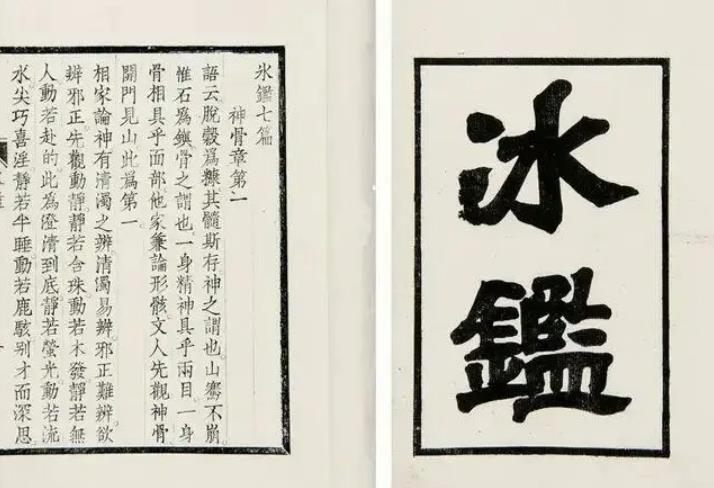 冰鑑
氷鑑七篇
神骨章第一
語云脫穀爲糠其髓斯存神之謂也山騫不崩
惟石爲鎮骨之謂也一身精神具乎兩目一身
骨相具乎面部他家兼論形骸文人先觀神骨
開門見山此爲第一
相家論神有清濁之辨清濁易辨邪正難辨欲
辨邪正先觀動靜靜若含珠動若木發靜若無
人動若赴的此爲澄清到底靜若螢光動若流
水尖巧喜淫靜若半睡動若鹿駭别才而深思